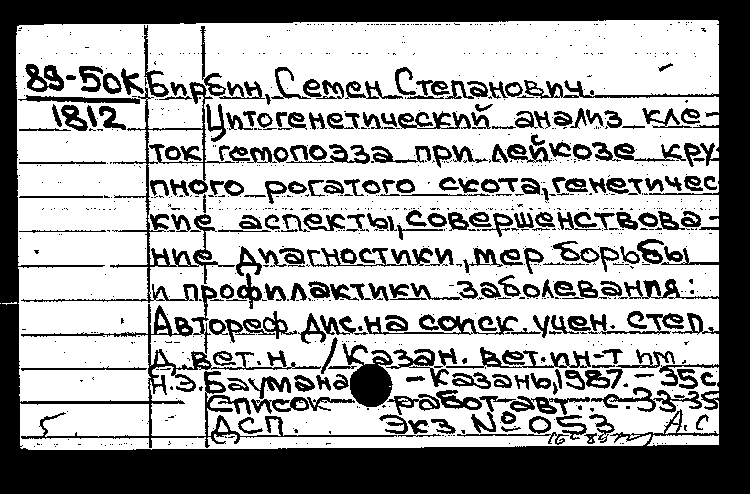 89-50К Бирбин, Семен Степанович.
1812 Цитогенетический анализ кле-
ток гемопоэза при лейкозе кру-
пного рогатого скота, генетичес
кие аспекты, совершенствова-
ние диагностики, мер борьбы
и профилактики заболевания:
Автореф. дис. на соиск. учен. степ.
д. вет. н. / Казан. вет. ин-т им.
Н.Э. Баумана - Казань, 1987. - 35 с.
Список работ авт.: с. 33-35
5. ДСП. Экз. № 053 А.С